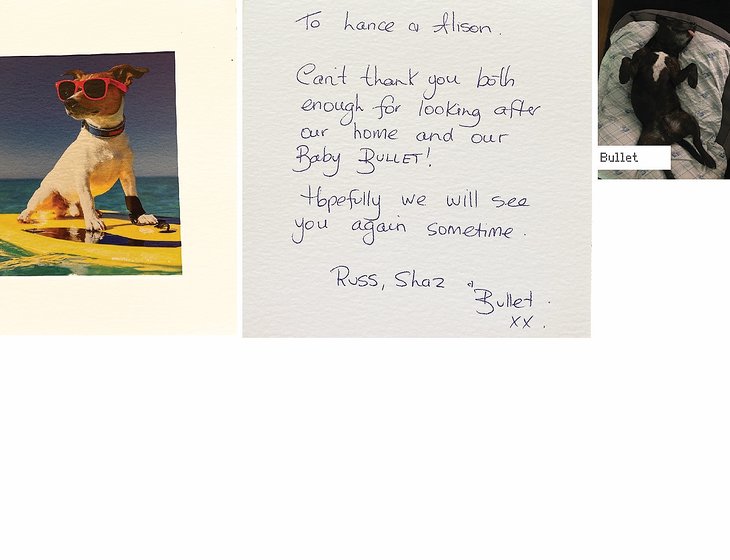 To Lance & Alison.
Can't thank you both
enough for looking after
our home and our
Baby BULLET!
Hopefully we will see
you again sometime.
Russ, Shaz &
Bullet.
xx.
Bullet